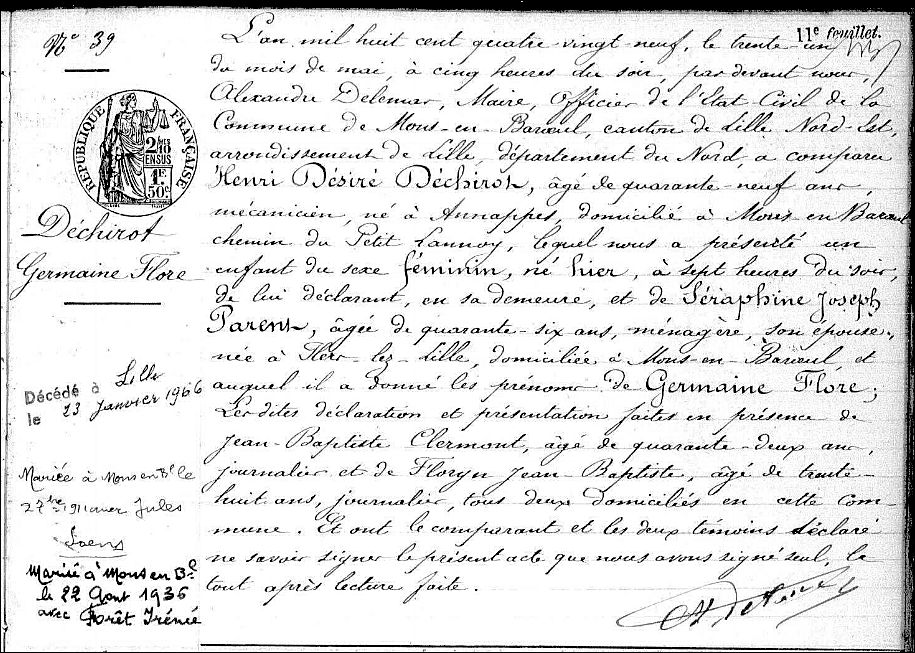 11e feuillet.
No 39
RÉPUBLIQUE FRANÇAISE
2/10
EN SUS
1F
50c
Déchirot
Germaine Flore
Décédé à Lille
le 23 Janvier 1966
Mariée à Mons en Bl le
1911 avec Jules
Mariée à Mons en Bl
le 22 Aout 1936
avec Forêt Irénée
L'an mil huit cent quatre-vingt-neuf, le trente-un
du mois de mai, à cinq heures du soir, par devant nous,
Alexandre Delemar, Maire, Officier de l'Etat Civil de la
Commune de Mons-en-Barœul, canton de Lille Nord-Est,
arrondissement de Lille, département du Nord, a comparu
Henri Désiré Déchirot, âgé de quarante-neuf ans,
mécanicien, né à Annappes, domicilié à Mons en Barœul
chemin du Petit Lannoy, lequel nous a présenté un
enfant du sexe féminin, né hier, à sept heures du soir,
de lui déclarant, en sa demeure, et de Séraphine Joseph
Parent, âgée de quarante-six ans, ménagère, son épouse,
née à Flers-lez-Lille, domiciliée à Mons-en-Barœul, et
auquel il a donné les prénoms de Germaine Flore;
Les dites déclaration et présentation faites en présence de
Jean-Baptiste Clermont, âgé de quarante-deux ans
journalier et de Floryn Jean-Baptiste, âgé de trente-
huit ans, journalier, tous deux domiciliés en cette Com-
mune. Et ont le comparant et les deux témoins déclaré
ne savoir signer le présent acte que nous avons signé seul, le
tout après lecture faite.